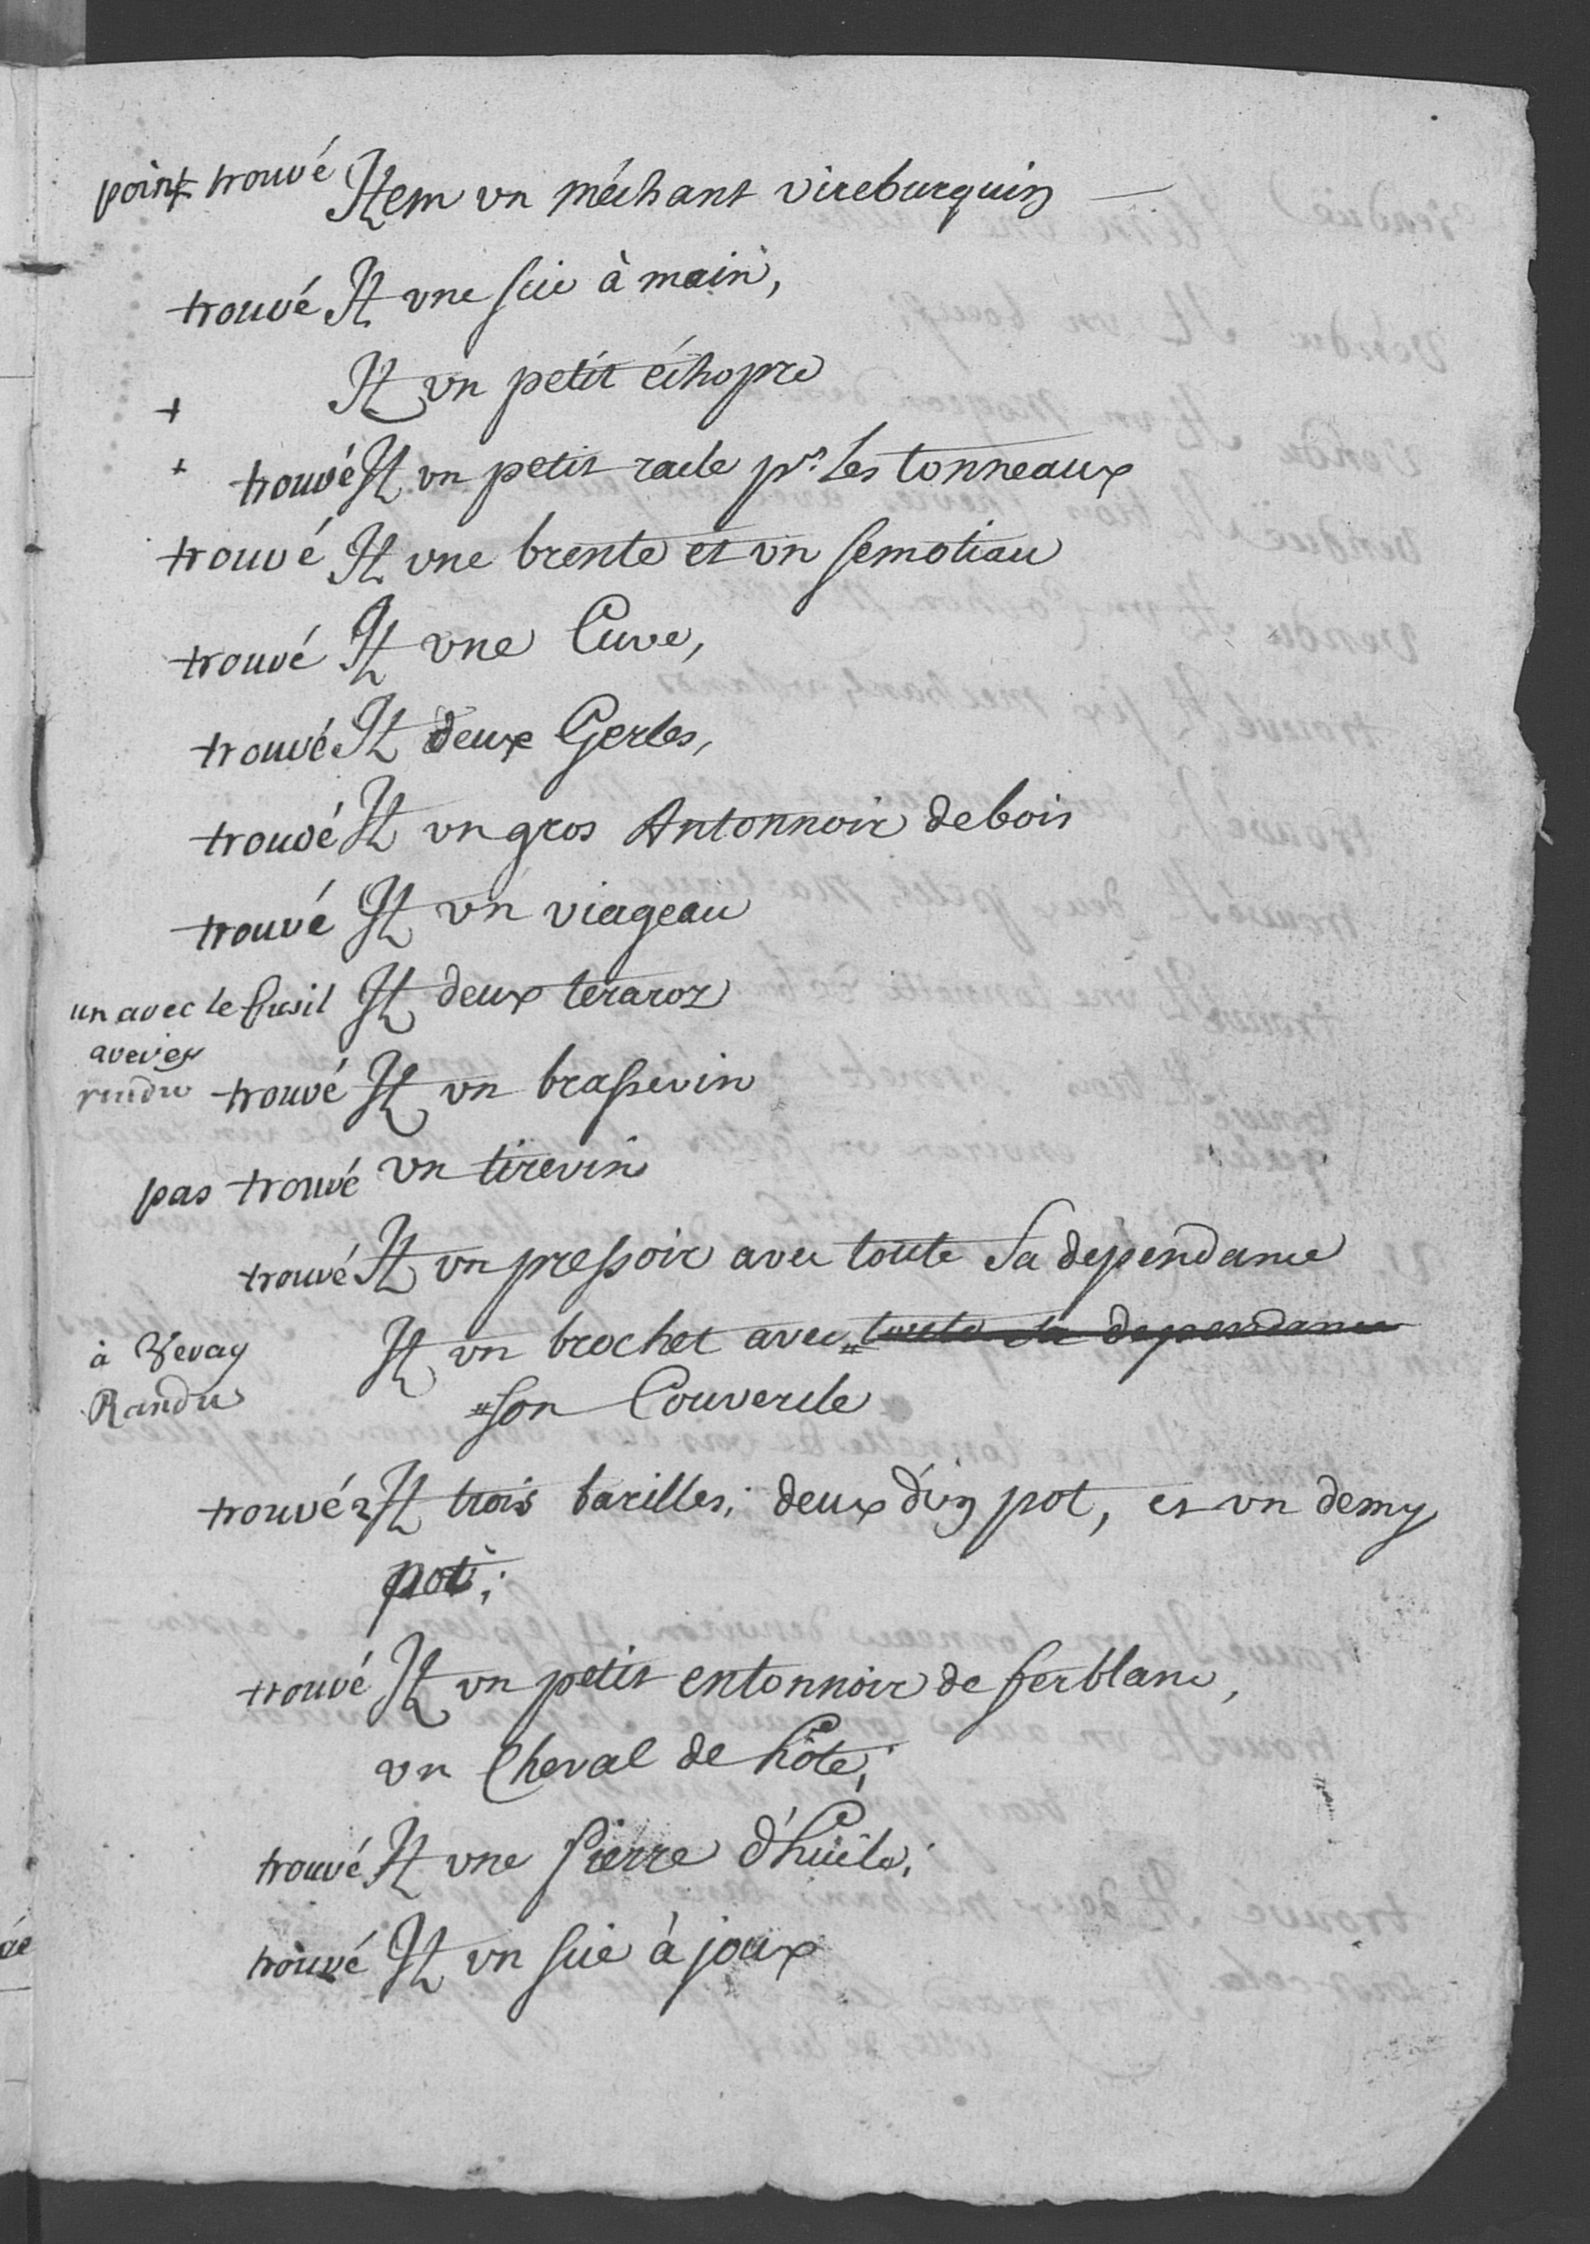 point trouvé Item un méchant vireburquin
trouvé It une scie à main,
+ It un petit échopre
+ trouvé It un petit racle pr. les tonneaux
trouvé It une brente et un semotiau
trouvé It une Cuve,
trouvé It deux Gerles,
trouvé It un gros Antonnoir de bois
trouvé It un viageau
un avec le fusil It deux teraroz
avevey
rendu trouvé It un brassevin
pas trouvé un tirevin
trouvé It un pressoir avec toute Sa dépendance
à Vevay It un brochet avec toute sa dependance
Randu son Couvercle
trouvé 2 It trois barilles; deux d'un pot, et un demy
pot;
trouvé It un petit entonnoir de ferblanc,
un Cheval de hôte;
trouvé It une Pierre d'huile;
trouvé It un scie à joux